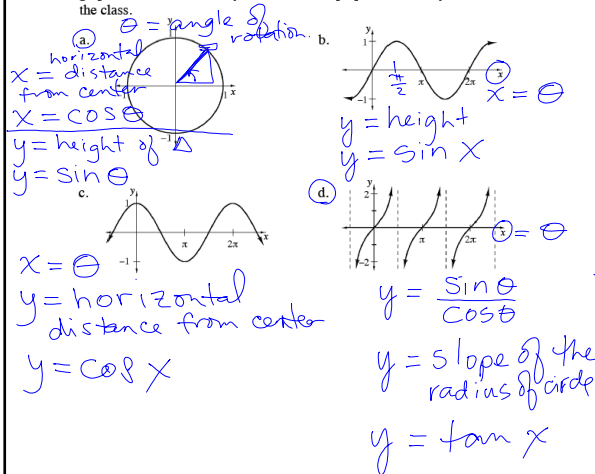 the class.
θ = angle of rotation.
a.
y
1
x
-1
horizontal
x = distance
from center
x = cos θ
y = height of Δ
y = sin θ
b.
y
1
-1
π/2
π
2π
x
x = θ
y = height
y = sin x
c.
y
1
-1
π
2π
x
x = θ
y = horizontal
distance from center
y = cos x
d.
y
2
-2
π
2π
x
= θ
y = sin θ / cos θ
y = slope of the
radius of circle
y = tan x